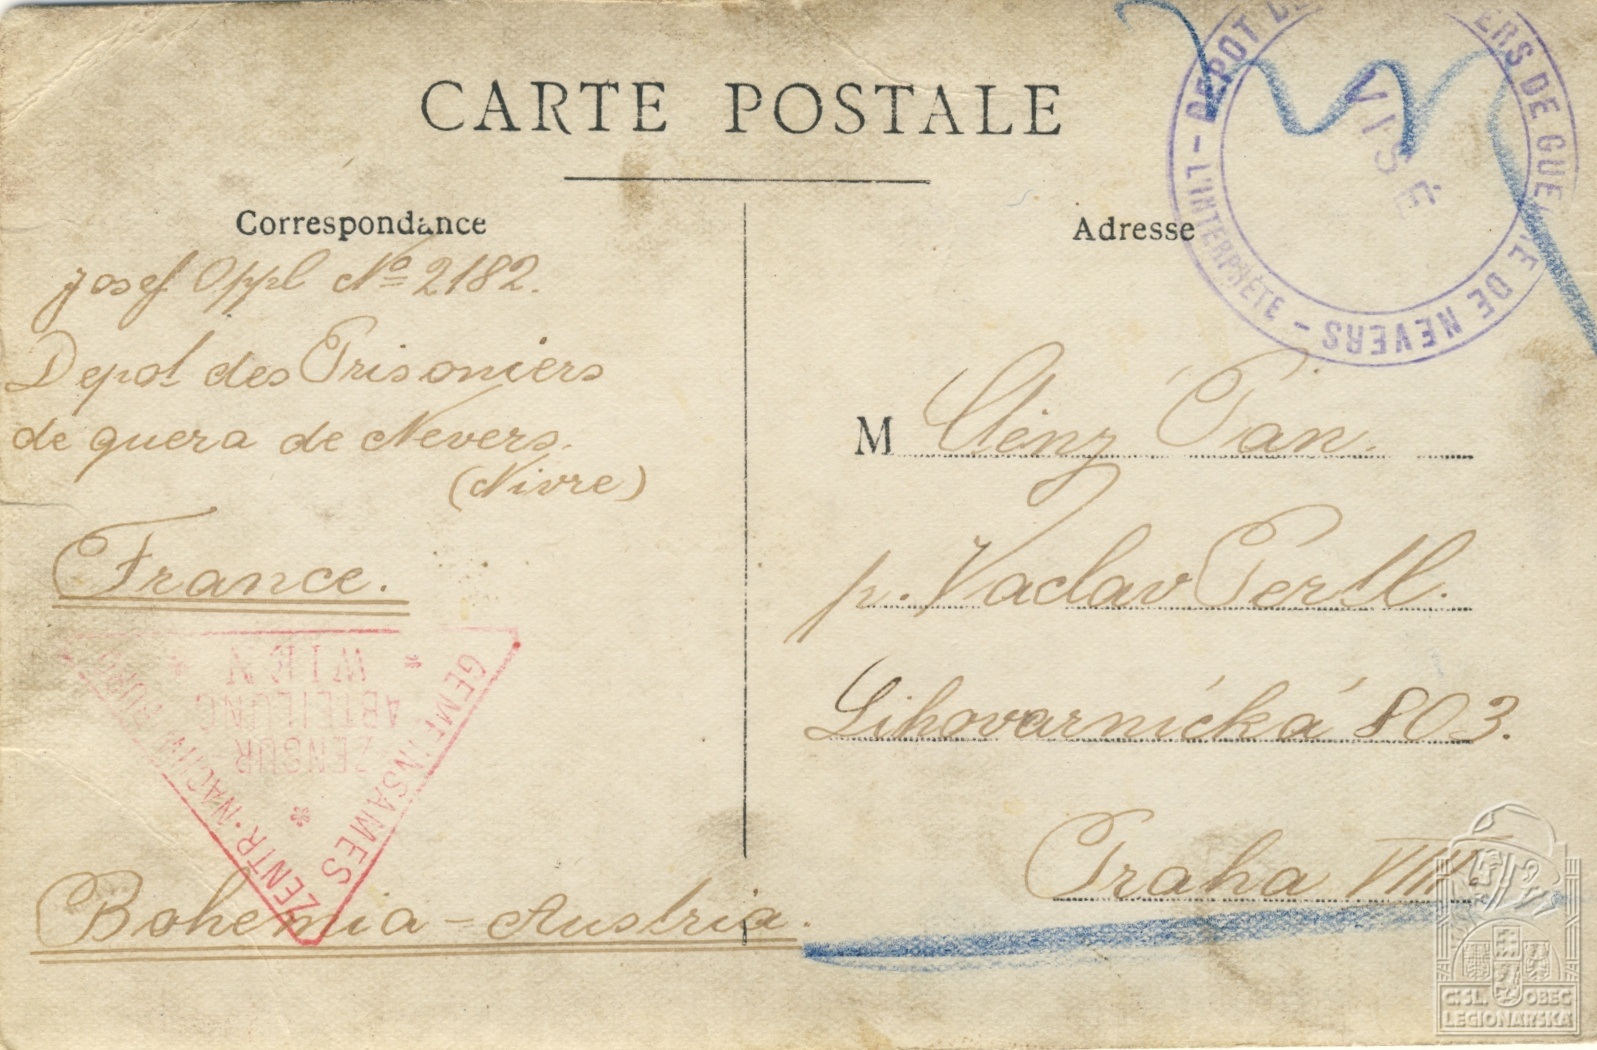 CARTE POSTALE
Correspondance
Josef Oppl No 2182.
Depot des Prisoniers
de guera de Nevers.
(Nivre)
France.
Bohemia - Austria.
Adresse
M Ctěný Pán.
p. Vaclav Pertl.
Lihovarnická 803.
Praha VIII.
DEPOT DE ERS DE GUE RE DE NEVERS - L'INTERPRÈTE -
VISÉ
GEMEINSAMES ZENTR-NACHW BURO
WIEN
ABTEILUNG
ZENSUR
ČSL. OBEC
LEGIONÁŘSKÁ